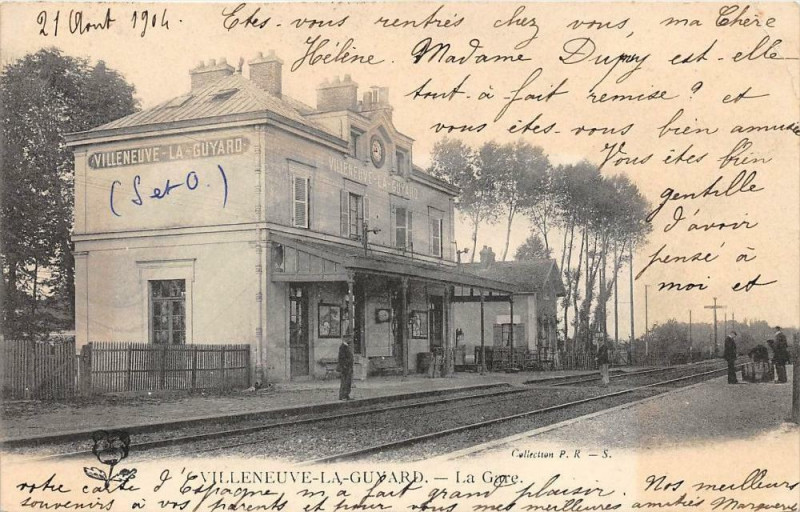 21 Août 1904.
Etes-vous rentrés chez vous, ma Chère
Hélène. Madame Dupuy est-elle
tout-à fait remise? et
vous êtes-vous bien amusée
Vous êtes bien
gentille
d'avoir
pensé à
moi et
VILLENEUVE-LA-GUYARD
VILLENEUVE-LA-GUYARD
(S et O.)
Collection P. R - S.
VILLENEUVE-LA-GUYARD. — La Gare.
votre carte d'Espagne, m'a fait grand plaisir. Nos meilleurs
souvenirs à vos parents et pour vous mes meilleures amitiés Marguerite